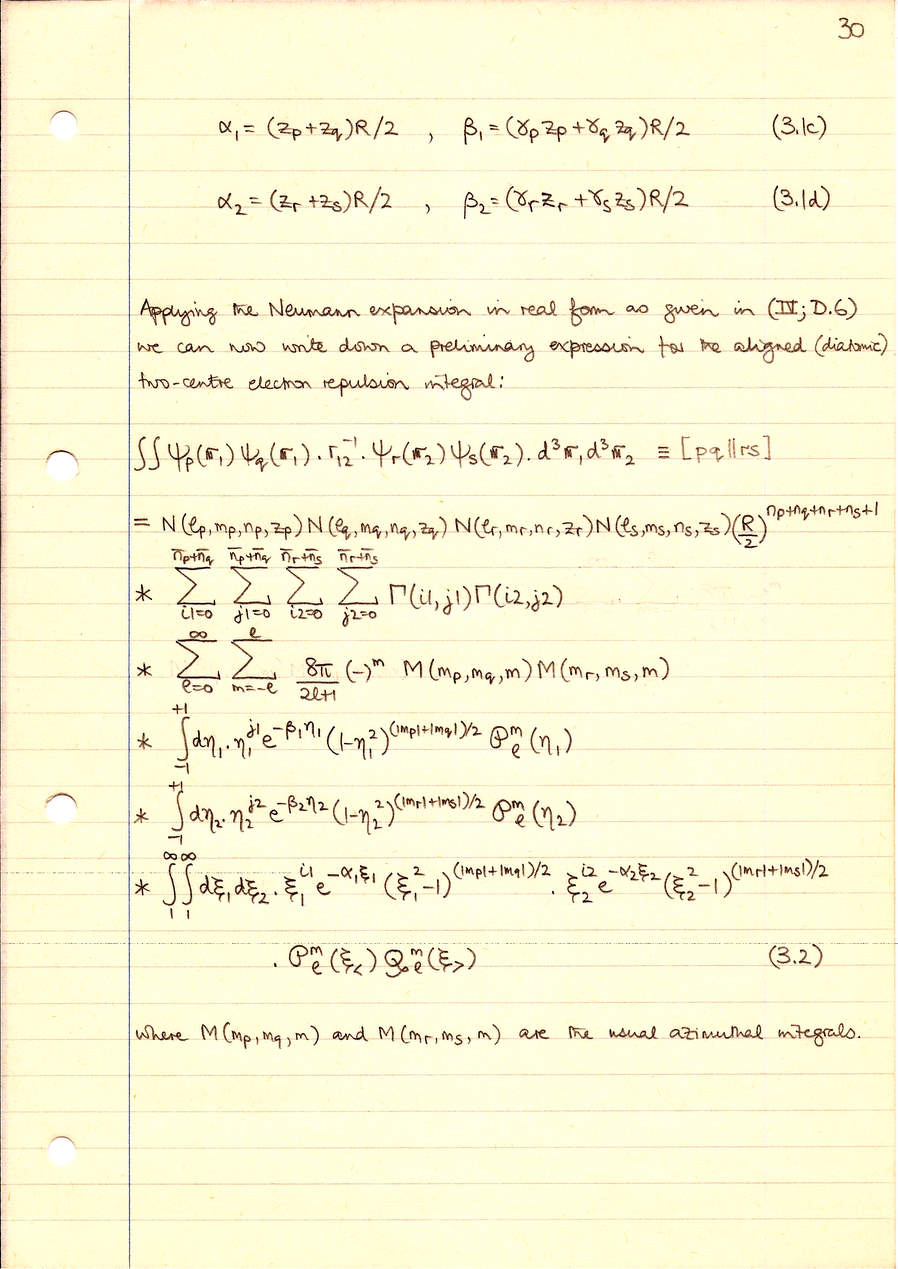 30
α₁ = (zp+zq)R/2 , β₁ = (γp zp + γq zq)R/2 (3.1c)
α₂ = (zr+zs)R/2 , β₂ = (γr zr + γs zs)R/2 (3.1d)
Applying the Neumann expansion in real form as given in (IV; D.6)
we can now write down a preliminary expression for the aligned (diatomic)
two-centre electron repulsion integral:
∫∫ ψp(r₁) ψq(r₁) . r₁₂⁻¹ . ψr(r₂) ψs(r₂) . d³r₁ d³r₂ ≡ [pq||rs]
= N(ℓp, mp, np, zp) N(ℓq, mq, nq, zq) N(ℓr, mr, nr, zr) N(ℓs, ms, ns, zs) (R/2)^(np+nq+nr+ns+1)
* Σ_{i1=0}^{n̄p+n̄q} Σ_{j1=0}^{n̄p+n̄q} Σ_{i2=0}^{n̄r+n̄s} Σ_{j2=0}^{n̄r+n̄s} Γ(i1,j1) Γ(i2,j2)
* Σ_{ℓ=0}^{∞} Σ_{m=-ℓ}^{ℓ} 8π/(2ℓ+1) (-)^m M(mp, mq, m) M(mr, ms, m)
* ∫_{-1}^{+1} dη₁ . η₁^{j1} e^{-β₁η₁} (1-η₁²)^{(|mp|+|mq|)/2} 𝒫ℓ^m(η₁)
* ∫_{-1}^{+1} dη₂ . η₂^{j2} e^{-β₂η₂} (1-η₂²)^{(|mr|+|ms|)/2} 𝒫ℓ^m(η₂)
* ∫_1^∞ ∫_1^∞ dξ₁ dξ₂ . ξ₁^{i1} e^{-α₁ξ₁} (ξ₁²-1)^{(|mp|+|mq|)/2} . ξ₂^{i2} e^{-α₂ξ₂} (ξ₂²-1)^{(|mr|+|ms|)/2}
. 𝒫ℓ^m(ξ<) 𝒬ℓ^m(ξ>) (3.2)
where M(mp, mq, m) and M(mr, ms, m) are the usual azimuthal integrals.